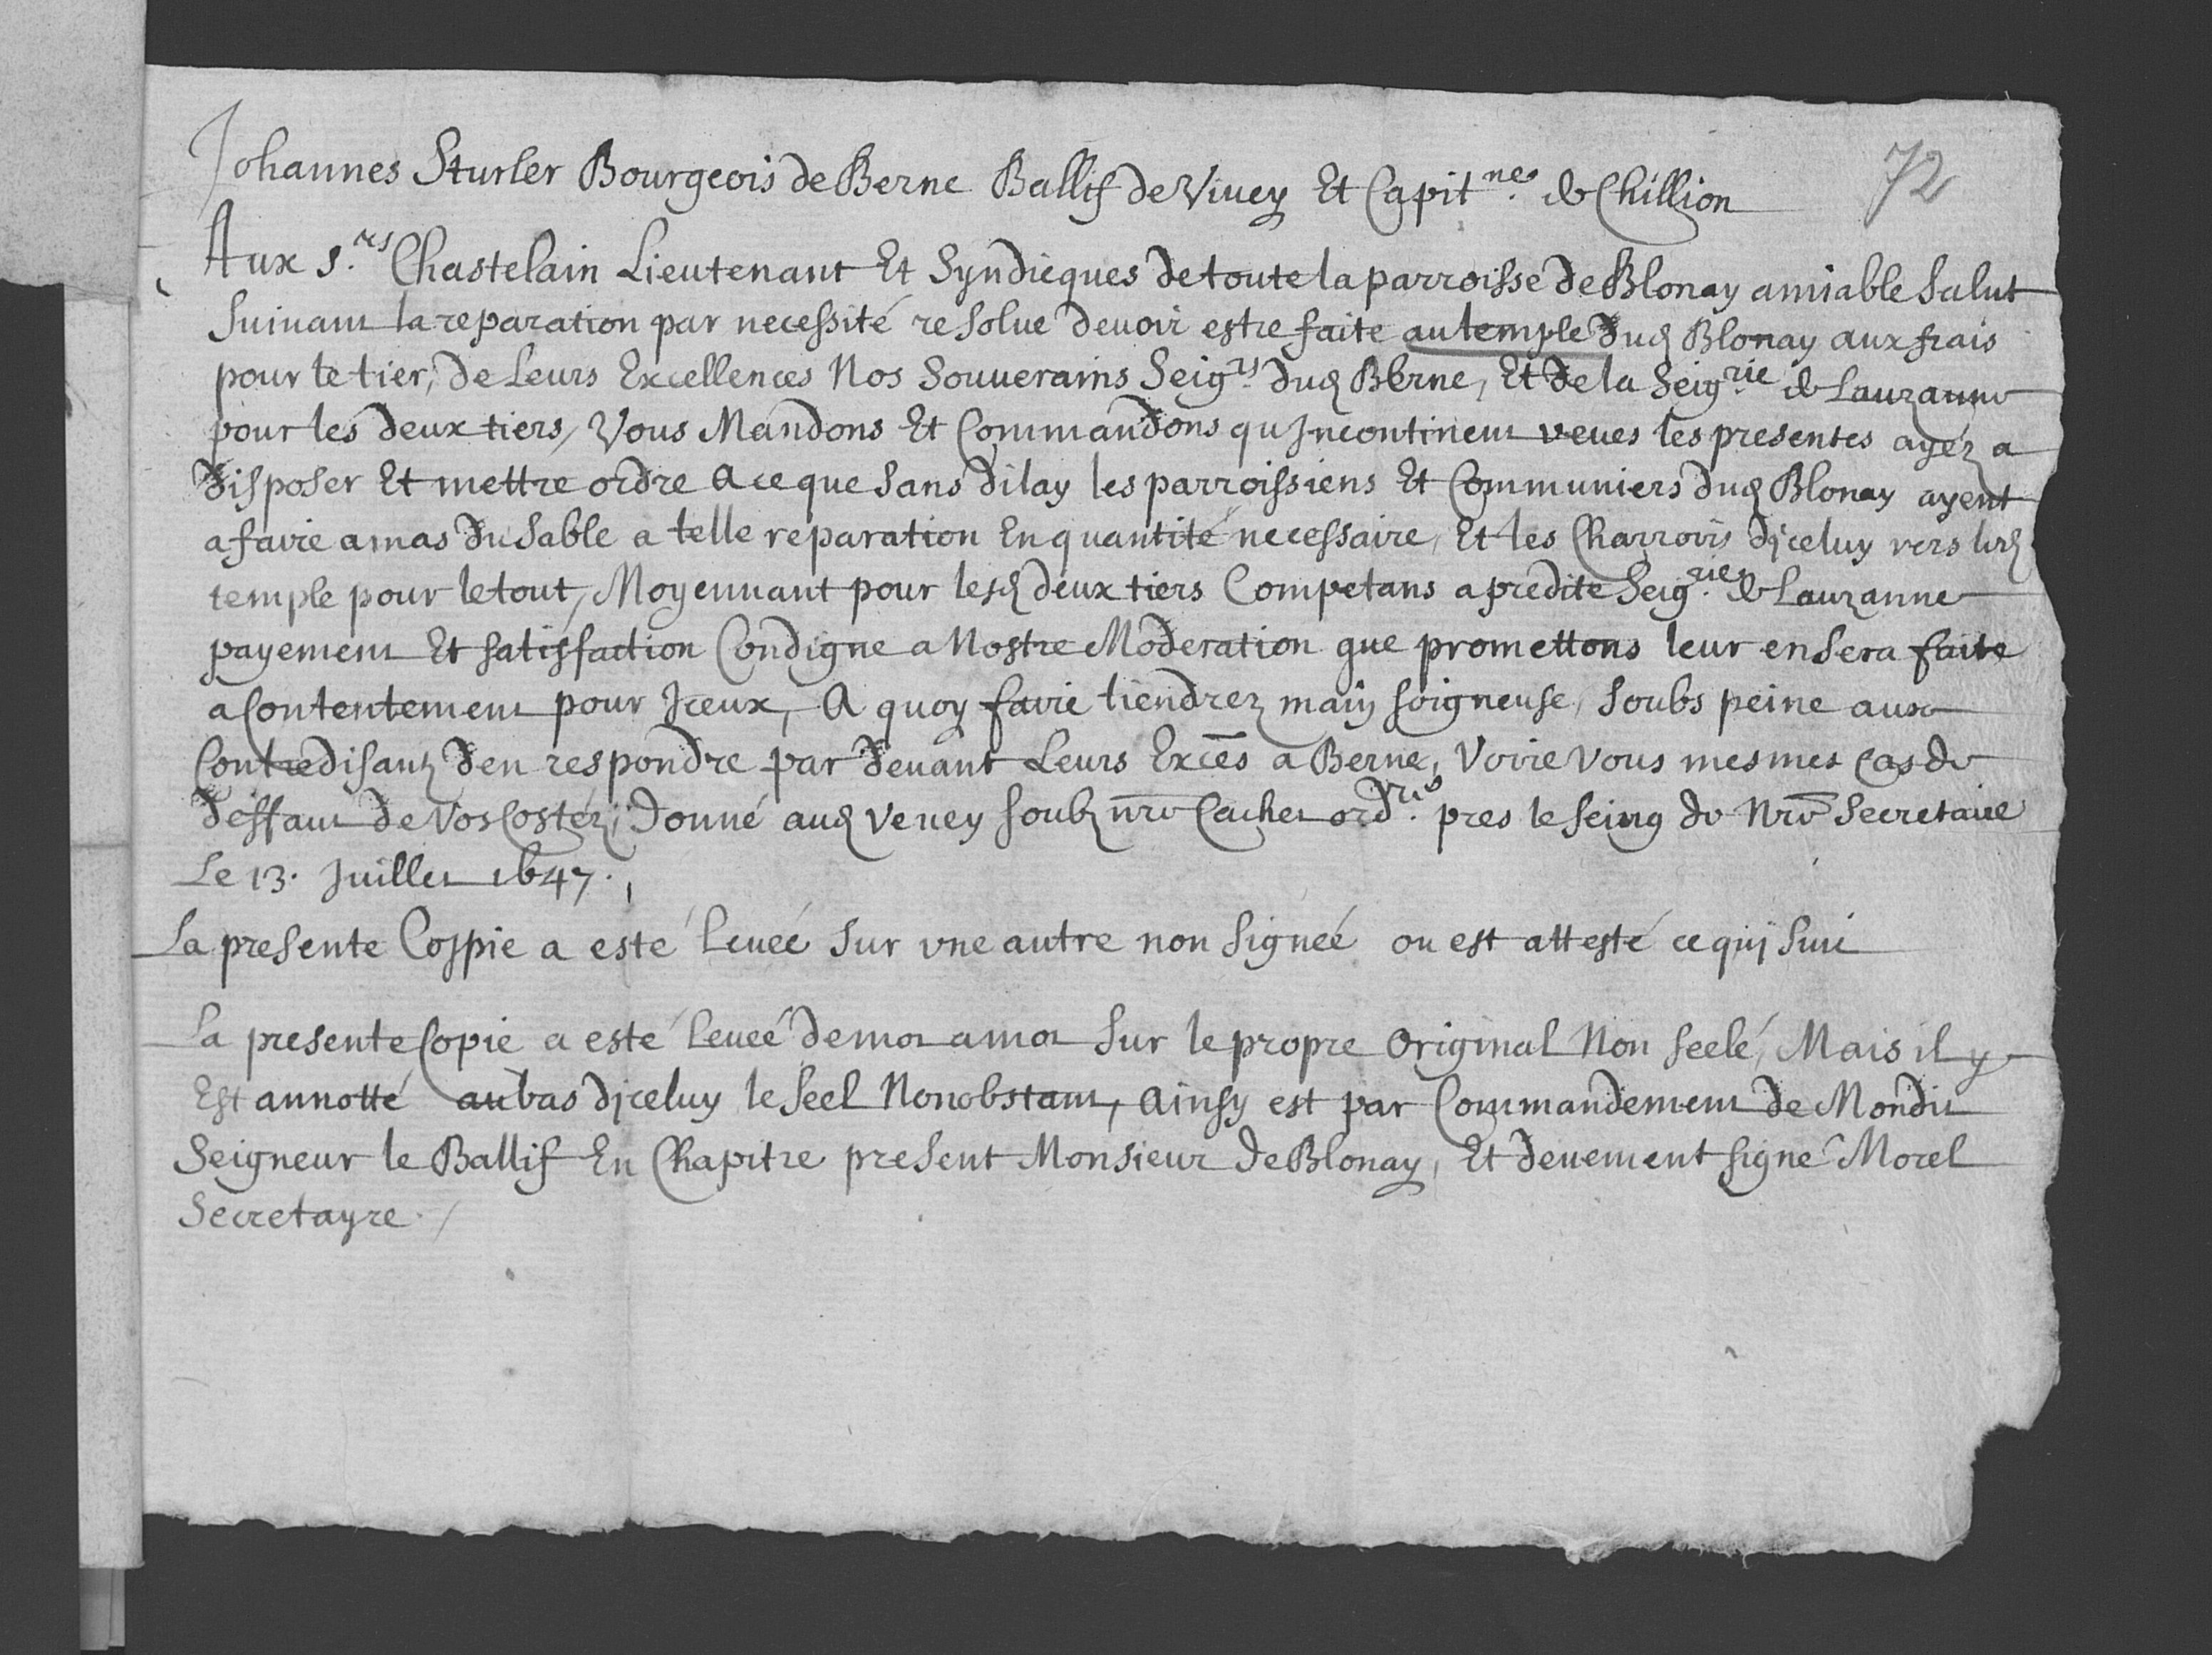 72
Johannes Sturler Bourgeois de Berne Ballif de Vivey Et Capit.ne de Chillion
Aux s.rs Chastelain Lieutenant Et Syndicques de toute la parroisse de Blonay amiable Salut
Suivant la reparation par necessité resolue devoir estre faite au temple dud Blonay aux frais
pour le tier, de Leurs Excellences Nos Souverains Seig.rs dud Berne, Et de la Seig.rie de Lauzanne
pour les deux tiers, Vous Mandons Et Commandons qu Incontinent veues les presentes ayéz a
disposer Et mettre ordre a ce que sans dilay les parroissiens Et Communiers dud Blonay ayent
a faire amas du Sable a telle reparation En quantité necessaire, Et les Charrois d'jceluy vers led
temple pour le tout, Moyennant pour lesd deux tiers Competans a predite Seig.rie de Lauzanne
payement Et satisfaction Condigne a Nostre Moderation que promettons leur en sera faite
a Contentement pour Iceux, A quoy faire tiendrez main soigneuse, soubs peine aux
Contredisantz d'en respondre par devant Leurs Exces a Berne, Voire Vous mesmes cas de
deffaut de Vos Costéz, Donné aud Vevey soubz nre Cachet ord.re pres le seing de Nre Secretaire
Le 13. Juillet 1647.
La presente Coppie a esté levéé sur vne autre non signéé ou est attesté ce quj suit
La presente Copie a esté levéé de mot a mot sur le propre Original Non seelé, Mais il y
Est annotté au bas d'jceluy le seel Nonobstant, Ainsy est par Commandement de Mondit
Seigneur le Ballif En Chapitre present Monsieur de Blonay, Et devement signé Morel
Secretayre.